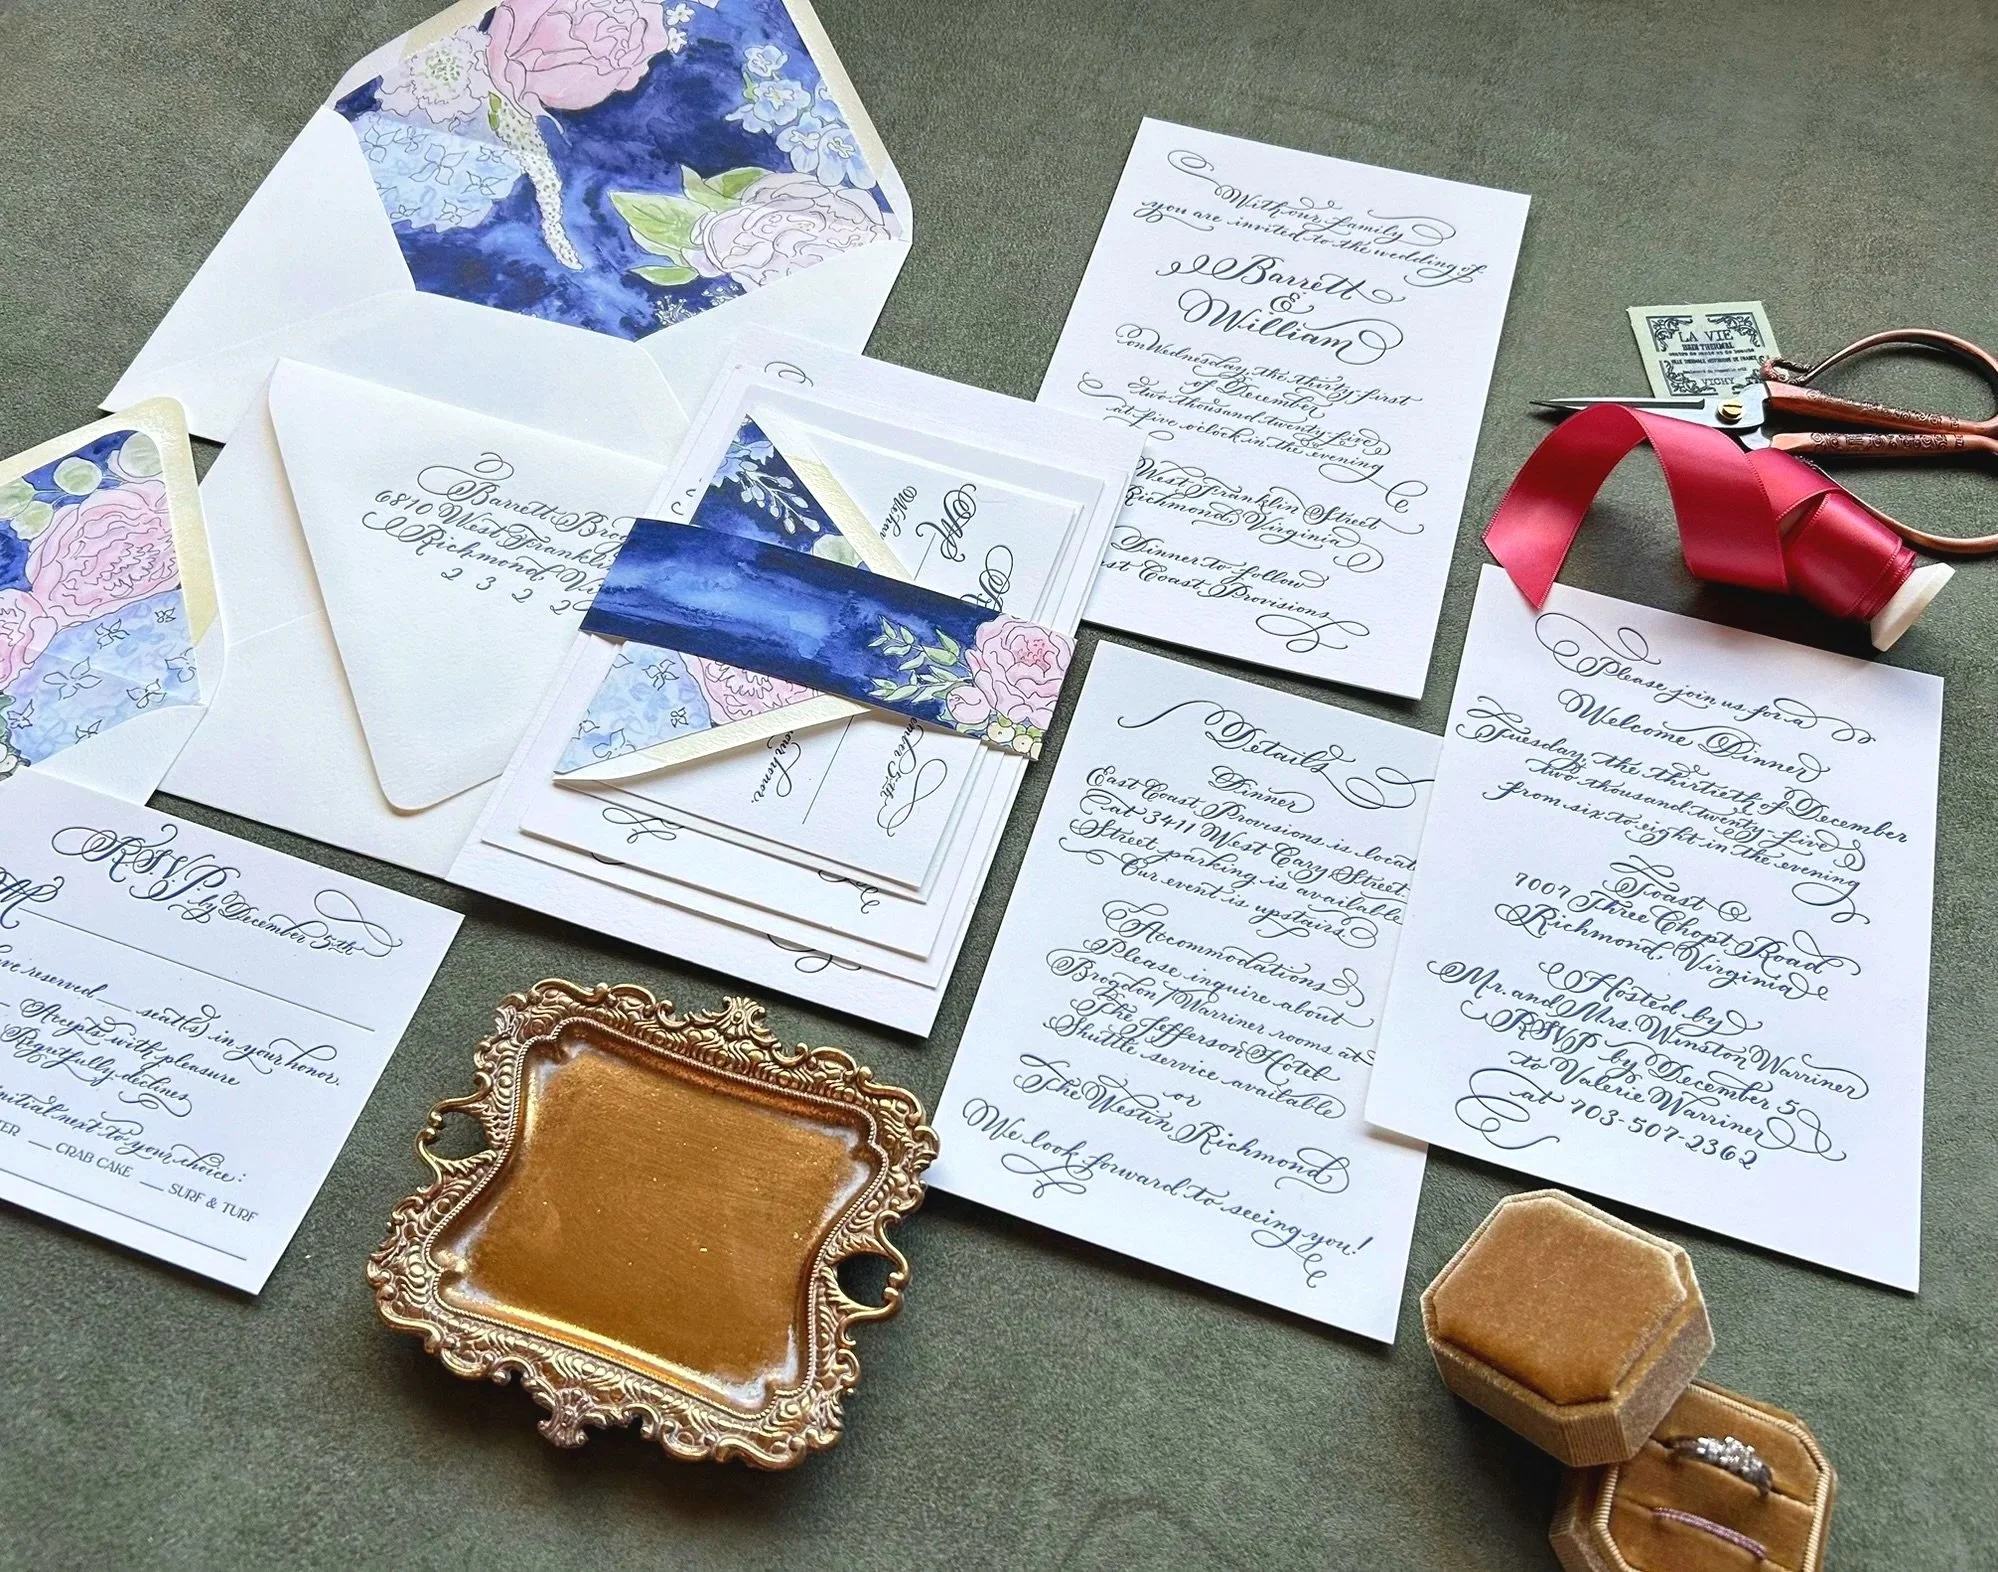 With our family
you are invited to the wedding of
Barrett
&
William
on Wednesday, the thirty-first
of December
two thousand twenty-five
at five o'clock in the evening
West Franklin Street
Richmond, Virginia
Dinner to follow
Coast Provisions
LA VIE
VICHY
Barrett
6810 West Franklin
Richmond, Vi
2 3 2 2
M
ember 5th
our honor.
Please join us for a
Welcome Dinner
Tuesday, the thirtieth of December
two thousand twenty-five
from six to eight in the evening
Toast
7007 Three Chopt Road
Richmond, Virginia
Hosted by
Mr. and Mrs. Winston Warriner
RSVP by December 5
to Valerie Warriner
at 703-507-2362
Details
Dinner
East Coast Provisions is locat
at 3411 West Cary Street.
Street parking is available
Our event is upstairs
Accommodations
Please inquire about
Brogdon/Warriner rooms at
The Jefferson Hotel
Shuttle service available
or
The Westin Richmond
We look forward to seeing you!
R.S.V.P. by December 5th
M
ve reserved ___ seat(s) in your honor.
Accepts with pleasure
Regretfully declines
initial next to your choice:
TER ___ CRAB CAKE ___ SURF & TURF